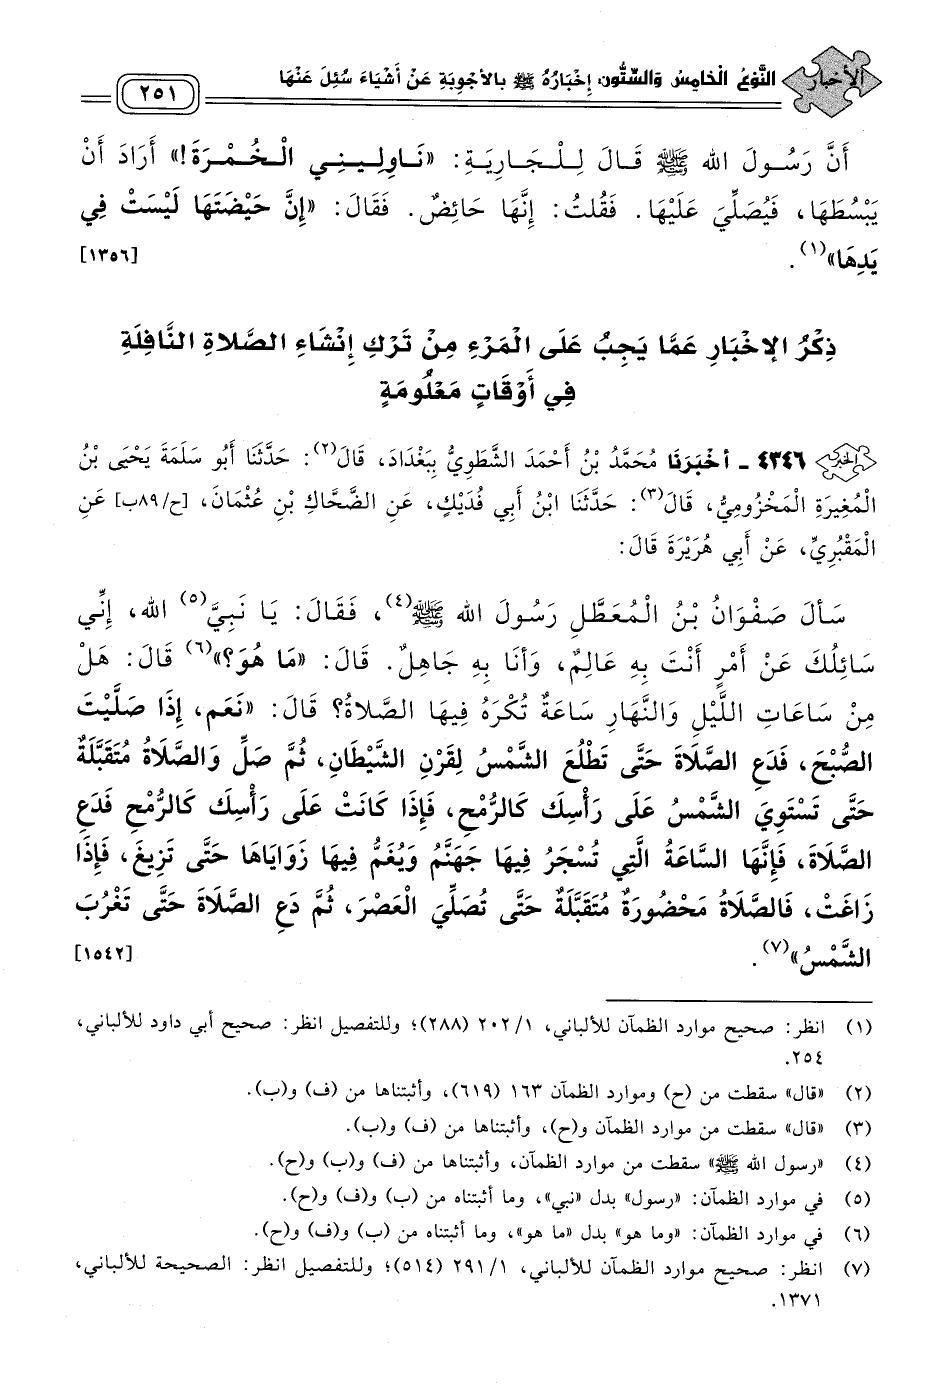 الأخبار النَّوْعُ الْخَامِسُ وَالسِّتُّونَ: إِخْبَارُهُ ﷺ بِالأَجْوِبَةِ عَنْ أَشْيَاءَ سُئِلَ عَنْهَا ٢٥١
أَنَّ رَسُولَ الله ﷺ قَالَ لِلْجَارِيَةِ: «نَاوِلِينِي الْخُمْرَةَ!» أَرَادَ أَنْ
يَبْسُطَهَا، فَيُصَلِّيَ عَلَيْهَا. فَقُلتُ: إِنَّهَا حَائِضٌ. فَقَالَ: «إِنَّ حَيْضَتَهَا لَيْسَتْ فِي
يَدِهَا»(١). [١٣٥٦]
ذِكْرُ الإخْبَارِ عَمَّا يَجِبُ عَلَى الْمَرْءِ مِنْ تَرْكِ إِنْشَاءِ الصَّلاةِ النَّافِلَةِ
فِي أَوْقَاتٍ مَعْلُومَةٍ
٤٣٤٦ - أخْبَرَنَا مُحَمَّدُ بْنُ أَحْمَدَ الشَّطَوِيُّ بِبَغْدَادَ، قَالَ(٢): حَدَّثَنَا أَبُو سَلَمَةَ يَحْيَى بْنُ
الْمُغِيرَةِ الْمَخْزُومِيُّ، قَالَ(٣): حَدَّثَنَا ابْنُ أَبِي فُدَيْكٍ، عَنِ الضَّحَّاكِ بْنِ عُثْمَانَ، [ح/٨٩ب] عَنِ
الْمَقْبُرِيِّ، عَنْ أَبِي هُرَيْرَةَ قَالَ:
سَأَلَ صَفْوَانُ بْنُ الْمُعَطَّلِ رَسُولَ الله ﷺ(٤)، فَقَالَ: يَا نَبِيَّ(٥) الله، إِنِّي
سَائِلُكَ عَنْ أَمْرٍ أَنْتَ بِهِ عَالِمٌ، وَأَنَا بِهِ جَاهِلٌ. قَالَ: «مَا هُوَ؟»(٦) قَالَ: هَلْ
مِنْ سَاعَاتِ اللَّيْلِ وَالنَّهَارِ سَاعَةٌ تُكْرَهُ فِيهَا الصَّلاةُ؟ قَالَ: «نَعَم، إِذَا صَلَّيْتَ
الصُّبْحَ، فَدَعِ الصَّلَاةَ حَتَّى تَطْلُعَ الشَّمْسُ لِقَرْنِ الشَّيْطَانِ، ثُمَّ صَلِّ وَالصَّلَاةُ مُتَقَبَّلَةٌ
حَتَّى تَسْتَوِيَ الشَّمْسُ عَلَى رَأْسِكَ كَالرُّمْحِ، فَإِذَا كَانَتْ عَلَى رَأْسِكَ كَالرُّمْحِ فَدَعِ
الصَّلَاةَ، فَإِنَّهَا السَّاعَةُ الَّتِي تُسْجَرُ فِيهَا جَهَنَّمُ وَيُغَمُّ فِيهَا زَوَايَاهَا حَتَّى تَزِيغَ، فَإِذَا
زَاغَتْ، فَالصَّلَاةُ مَحْضُورَةٌ مُتَقَبَّلَةٌ حَتَّى تُصَلِّيَ الْعَصْرَ، ثُمَّ دَعِ الصَّلَاةَ حَتَّى تَغْرُبَ
الشَّمْسُ»(٧). [١٥٤٢]
(١) انظر: صحيح موارد الظمآن للألباني، ٢٠٢/١ (٢٨٨)؛ وللتفصيل انظر: صحيح أبي داود للألباني،
٢٥٤.
(٢) «قال» سقطت من (ح) وموارد الظمآن ١٦٣ (٦١٩)، وأثبتناها من (ف) و(ب).
(٣) «قال» سقطت من موارد الظمآن و(ح)، وأثبتناها من (ف) و(ب).
(٤) «رسول الله ﷺ» سقطت من موارد الظمآن، وأثبتناها من (ف) و(ب) و(ح).
(٥) في موارد الظمآن: «رسول» بدل «نبي»، وما أثبتناه من (ب) و(ف) و(ح).
(٦) في موارد الظمآن: «وما هو» بدل «ما هو»، وما أثبتناه من (ب) و(ف) و(ح).
(٧) انظر: صحيح موارد الظمآن للألباني، ٢٩١/١ (٥١٤)؛ وللتفصيل انظر: الصحيحة للألباني،
١٣٧١.